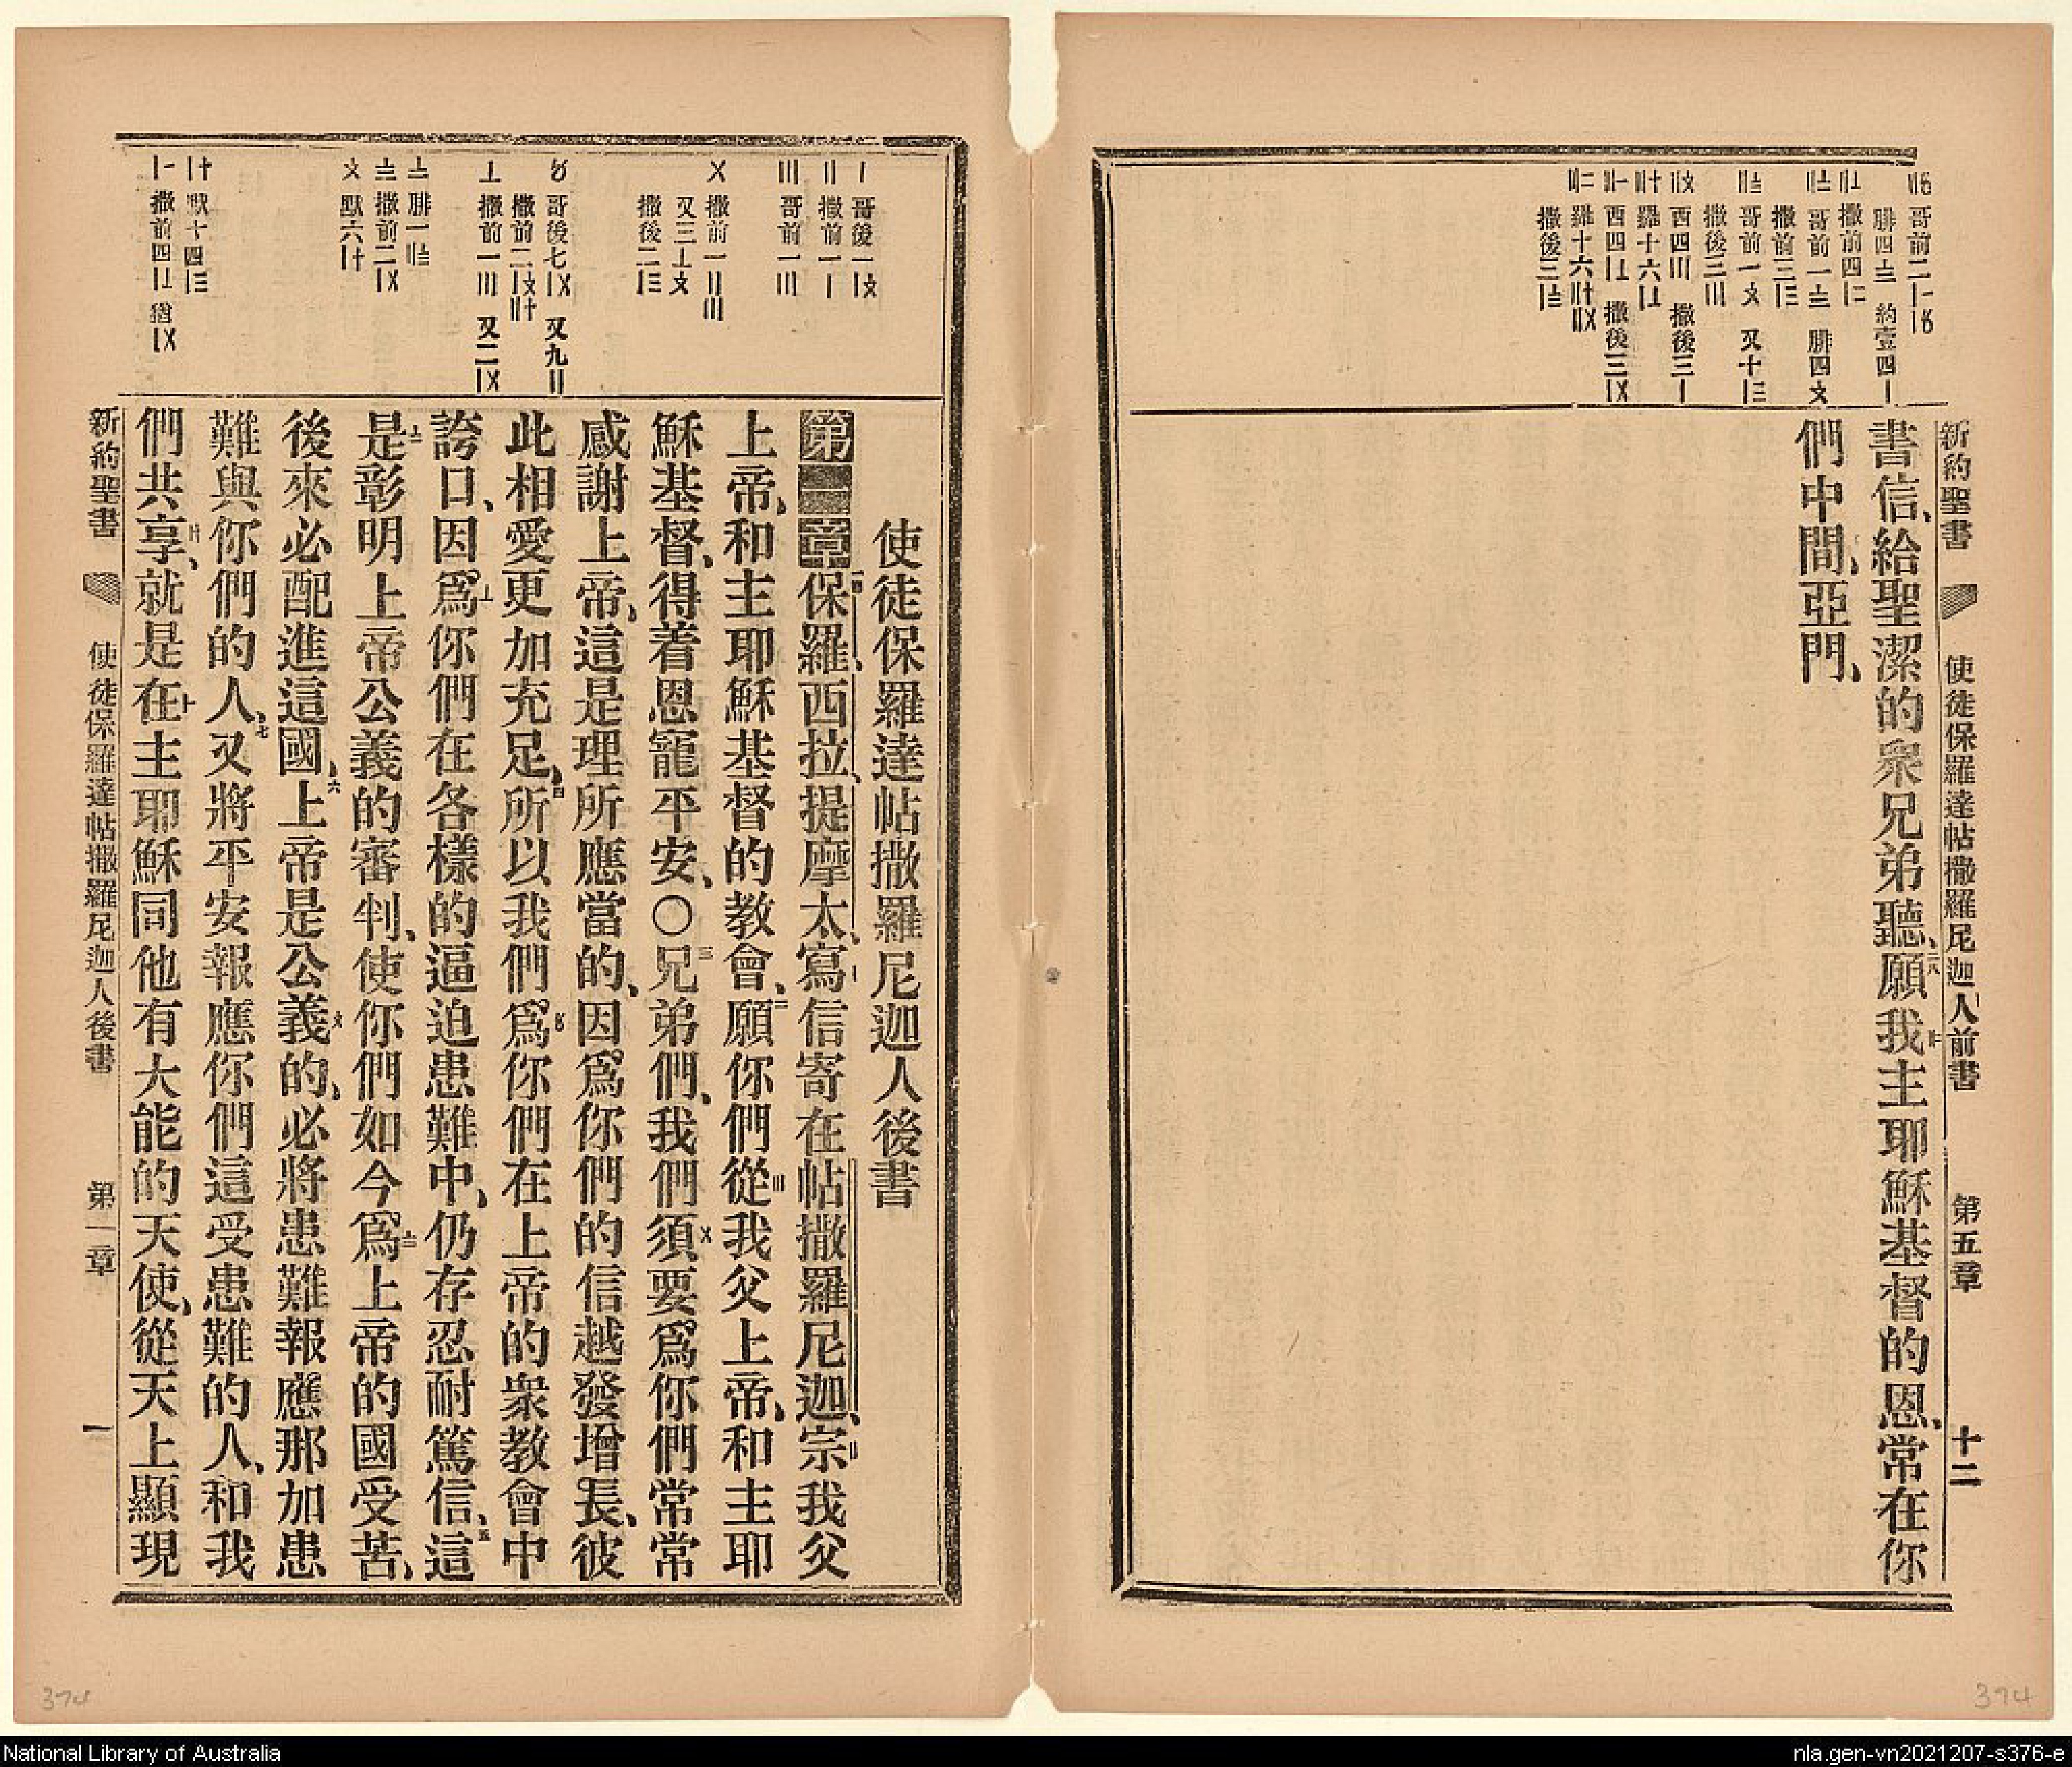 新約聖書 使徒保羅達帖撒羅尼迦人前書 第五章 十二
書信、給聖潔的衆兄弟聽、二八願我主耶穌基督的恩、常在你
們中間、亞門、
哥前二
腓四 約壹四〡
撒前四
哥前一〨 腓四〤
撒前三
哥前一〤 又十三
撒後三〣
西四〣 撒後三〡
羅十六
西四 撒後三
羅十六
撒後三
使徒保羅達帖撒羅尼迦人後書
第一章一保羅、西拉、提摩太、寫信寄在帖撒羅尼迦、宗我父
上帝、和主耶穌基督的教會、二願你們從我父上帝、和主耶
穌基督、得着恩寵平安、〇三兄弟們、我們須要爲你們常常
感謝上帝、這是理所應當的、因爲你們的信越發增長、彼
此相愛更加充足、四所以我們爲你們在上帝的衆教會中
誇口、因爲你們在各樣的逼迫患難中、仍存忍耐篤信、五這
是彰明上帝公義的審判、使你們如今爲上帝的國受苦、
後來必配進這國、六上帝是公義的、必將患難報應那加患
難與你們的人、七又將平安報應你們這受患難的人、和我
們共享、就是在主耶穌同他有大能的天使、從天上顯現
〡 哥後一
〢 撒前一〡
〣 哥前一〣
〤 撒前一〢〣
又三
撒後二
〥 哥後七 又九〢
撒前二
〦 撒前一〣 又二
〧 腓一
〨 撒前二
〩 默六
默十四
撒前四 猶
新約聖書 使徒保羅達帖撒羅尼迦人後書 第一章 一
374
374
National Library of Australia
nla.gen-vn2021207-s376-e